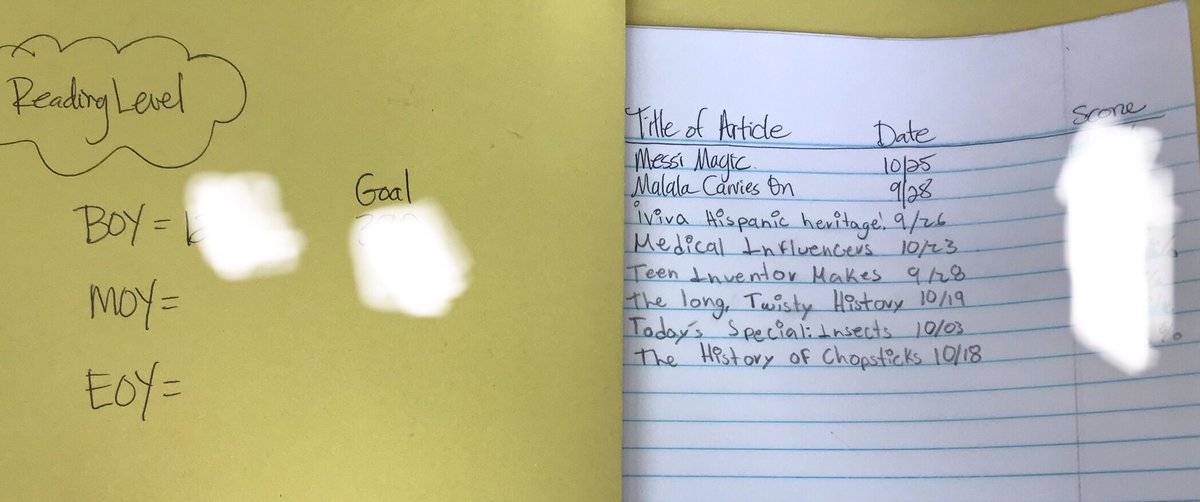 Reading Level
Goal
BOY =
MOY =
EOY =
Title of Article Date Score
Messi Magic 10/25
Malala Carries On 9/28
¡viva Hispanic heritage! 9/26
Medical Influencers 10/23
Teen Inventor Makes 9/28
The long, Twisty History 10/19
Today's Special: Insects 10/03
The History of Chopsticks 10/18